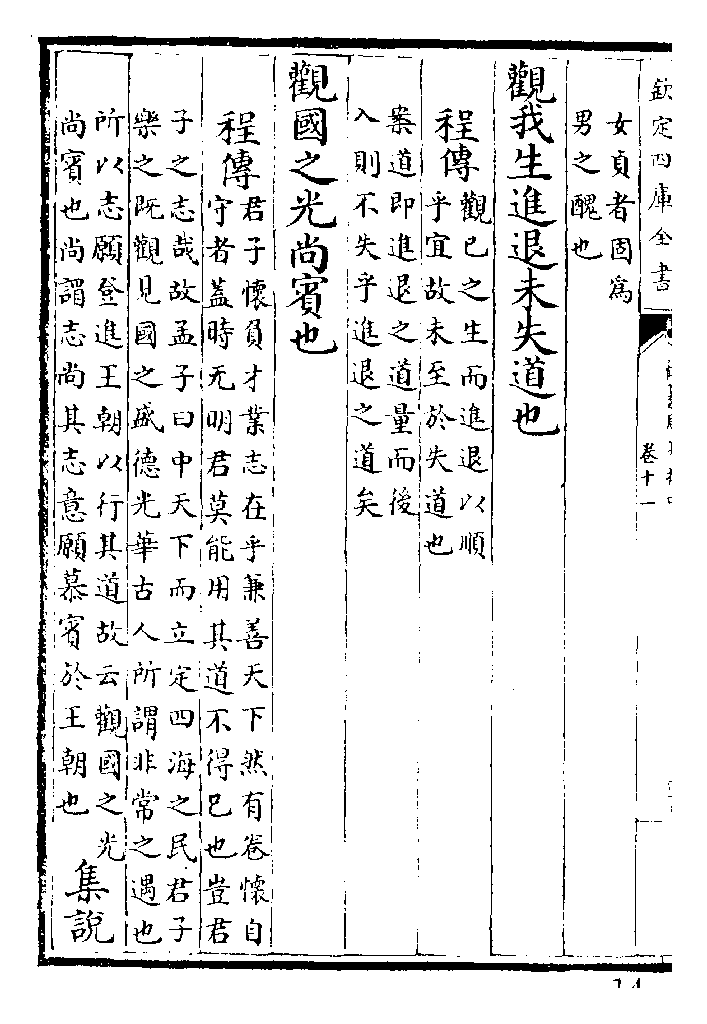 欽定四庫全書
卷十一
女貞者固爲
男之醜也
觀我生進退未失道也
程傳
觀已之生而進退以順
乎宜故未至於失道也
案道即進退之道量而後
入則不失乎進退之道矣
觀國之光尚賓也
程傳
君子懷負才業志在乎兼善天下然有卷懷自
守者蓋時无明君莫能用其道不得已也豈君
子之志哉故孟子曰中天下而立定四海之民君子
樂之既觀見國之盛德光華古人所謂非常之遇也
所以志願登進王朝以行其道故云觀國之光
尚賓也尚謂志尚其志意願慕賓於王朝也
集說